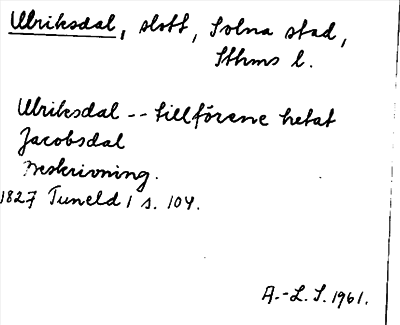 Ulriksdal, slott, Solna stad,
Sthms l.
Ulriksdal -- tillförene hetat
Jacobsdal
Beskrivning.
1827 Tuneld 1 s. 104.
A.-L. S. 1961.